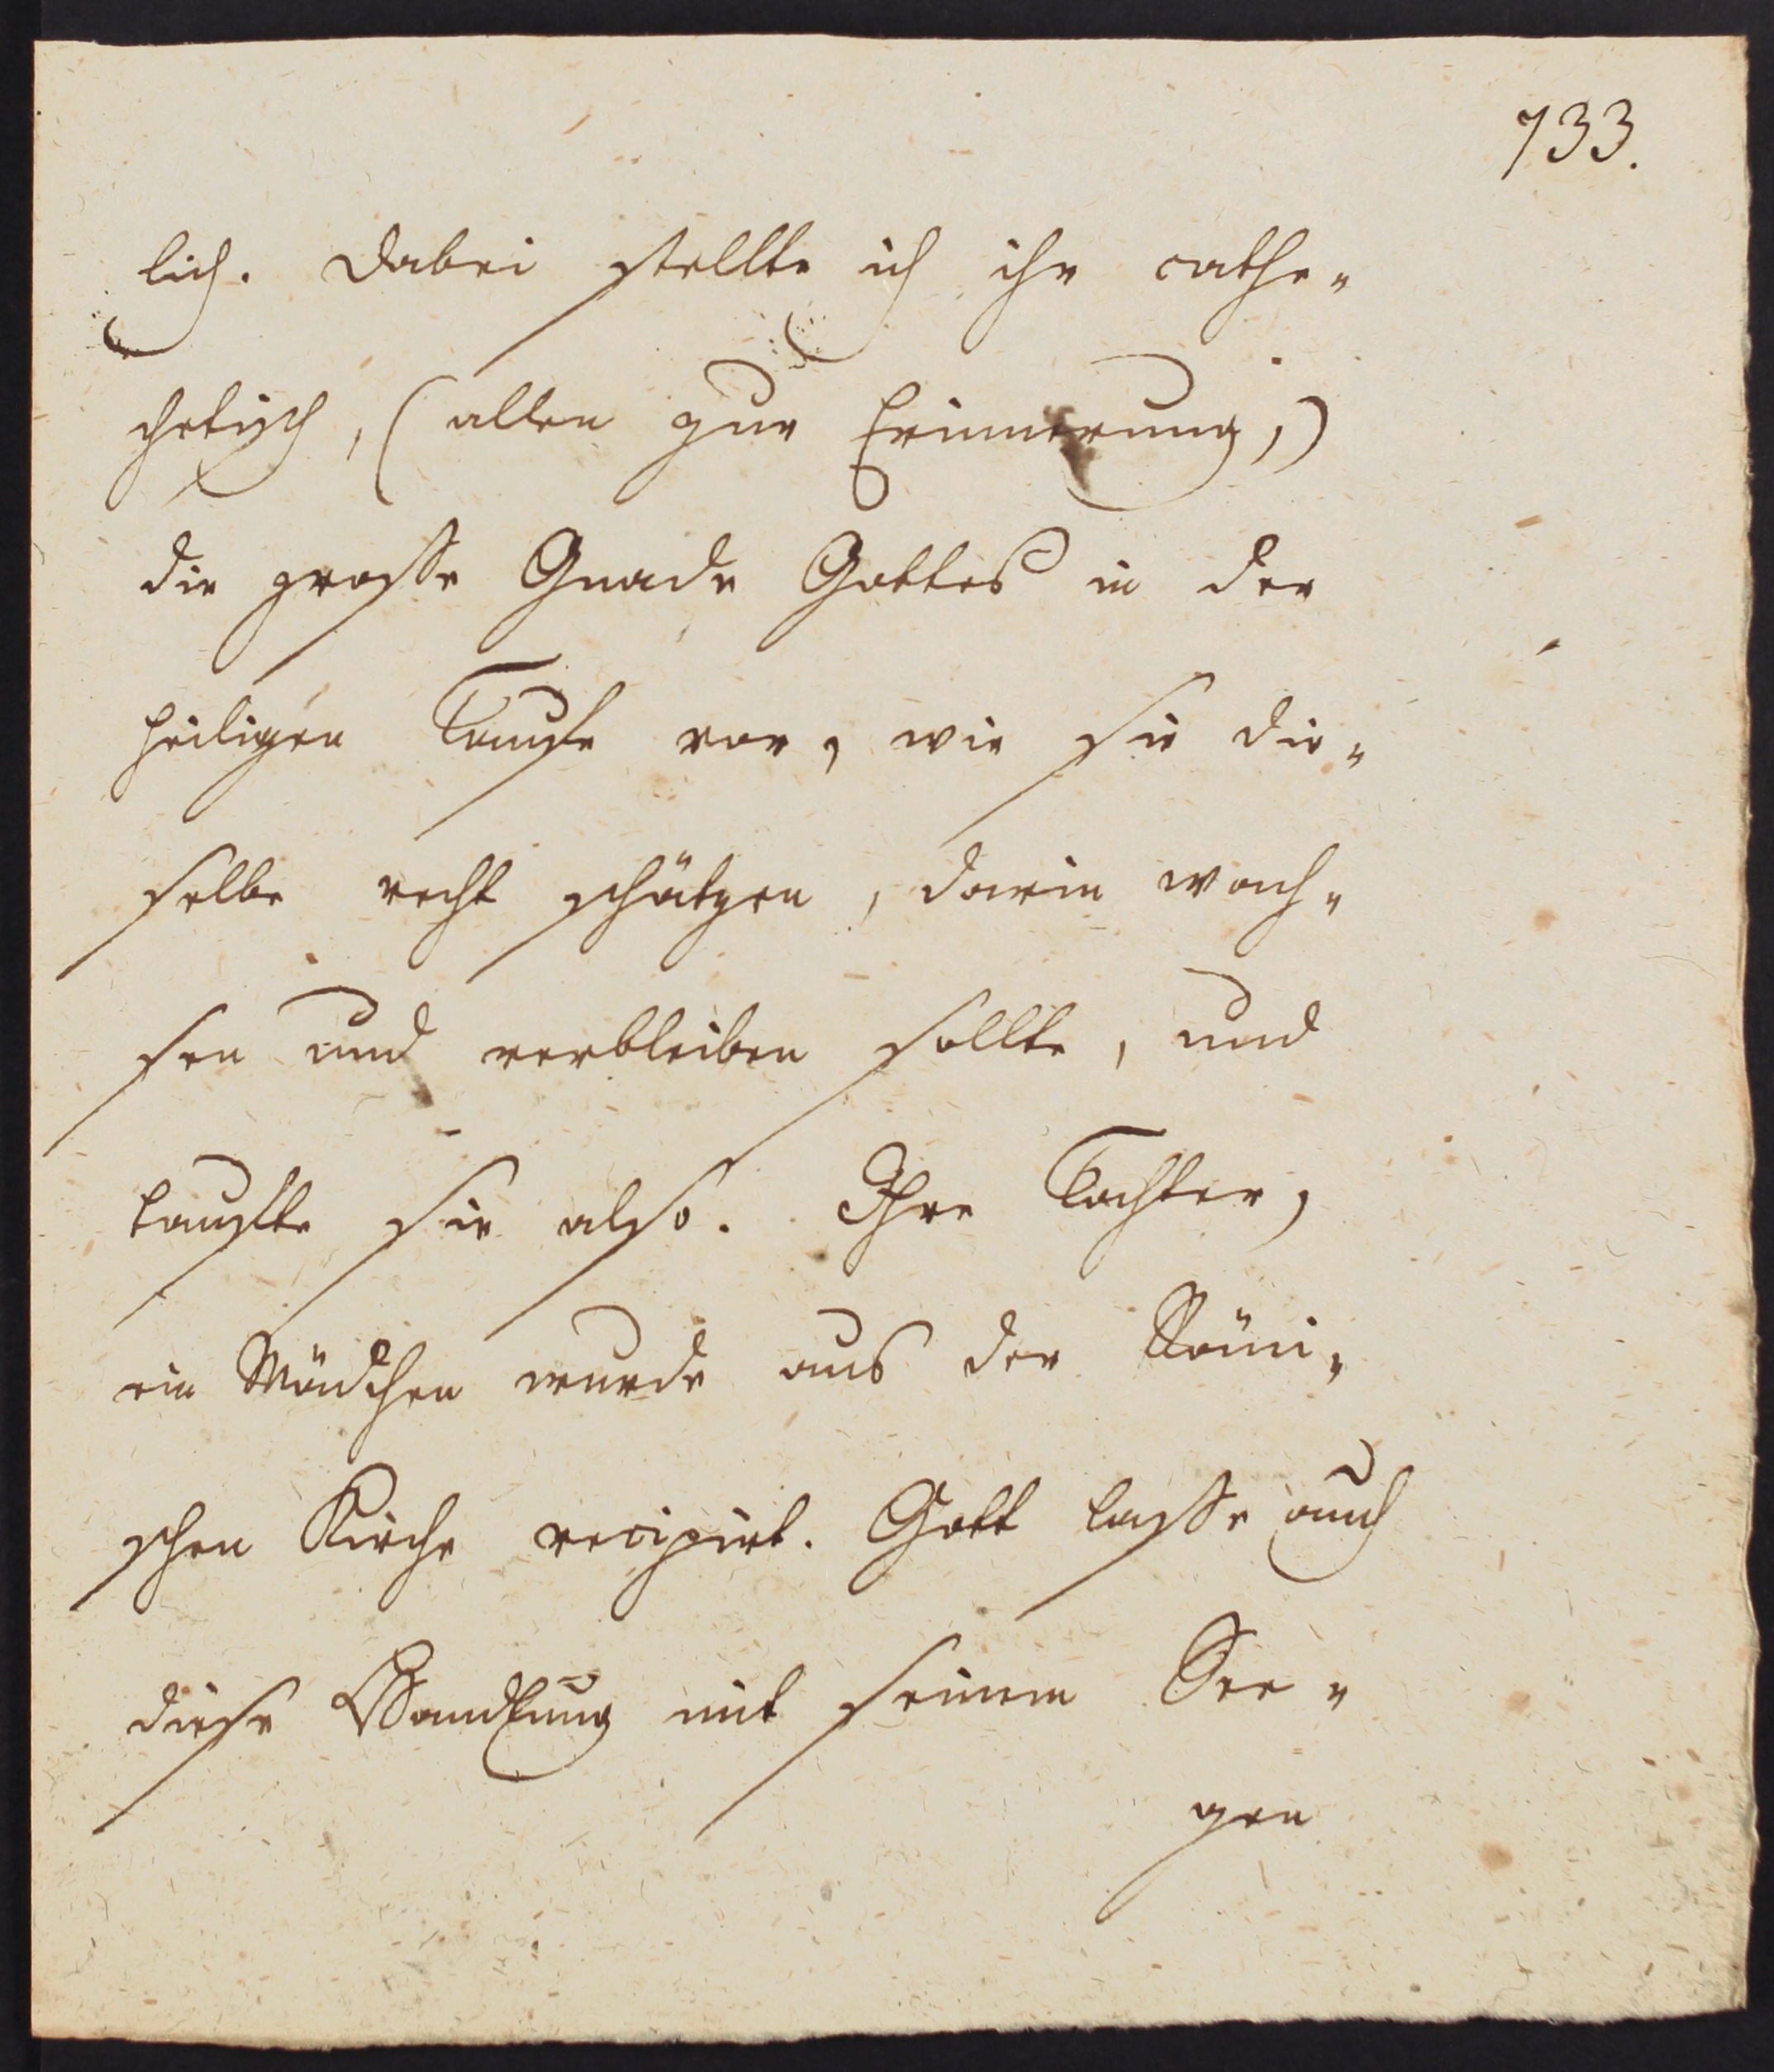 733.
lich. Dabei stellte ich ihr cathe-
chetisch, (allen zur Erinnerung,)
die grosse Gnade Gottes in der
heiligen Taufe vor, wie sie die-
selbe recht schätzen, darin wach-
sen und verbleiben sollte, und
taufte sie also. Ihre Tochter,
ein Mädchen wurde aus der Römi-
schen Kirche recipirt. Gott lasse auch
diese Handlung mit seinem See-
gen